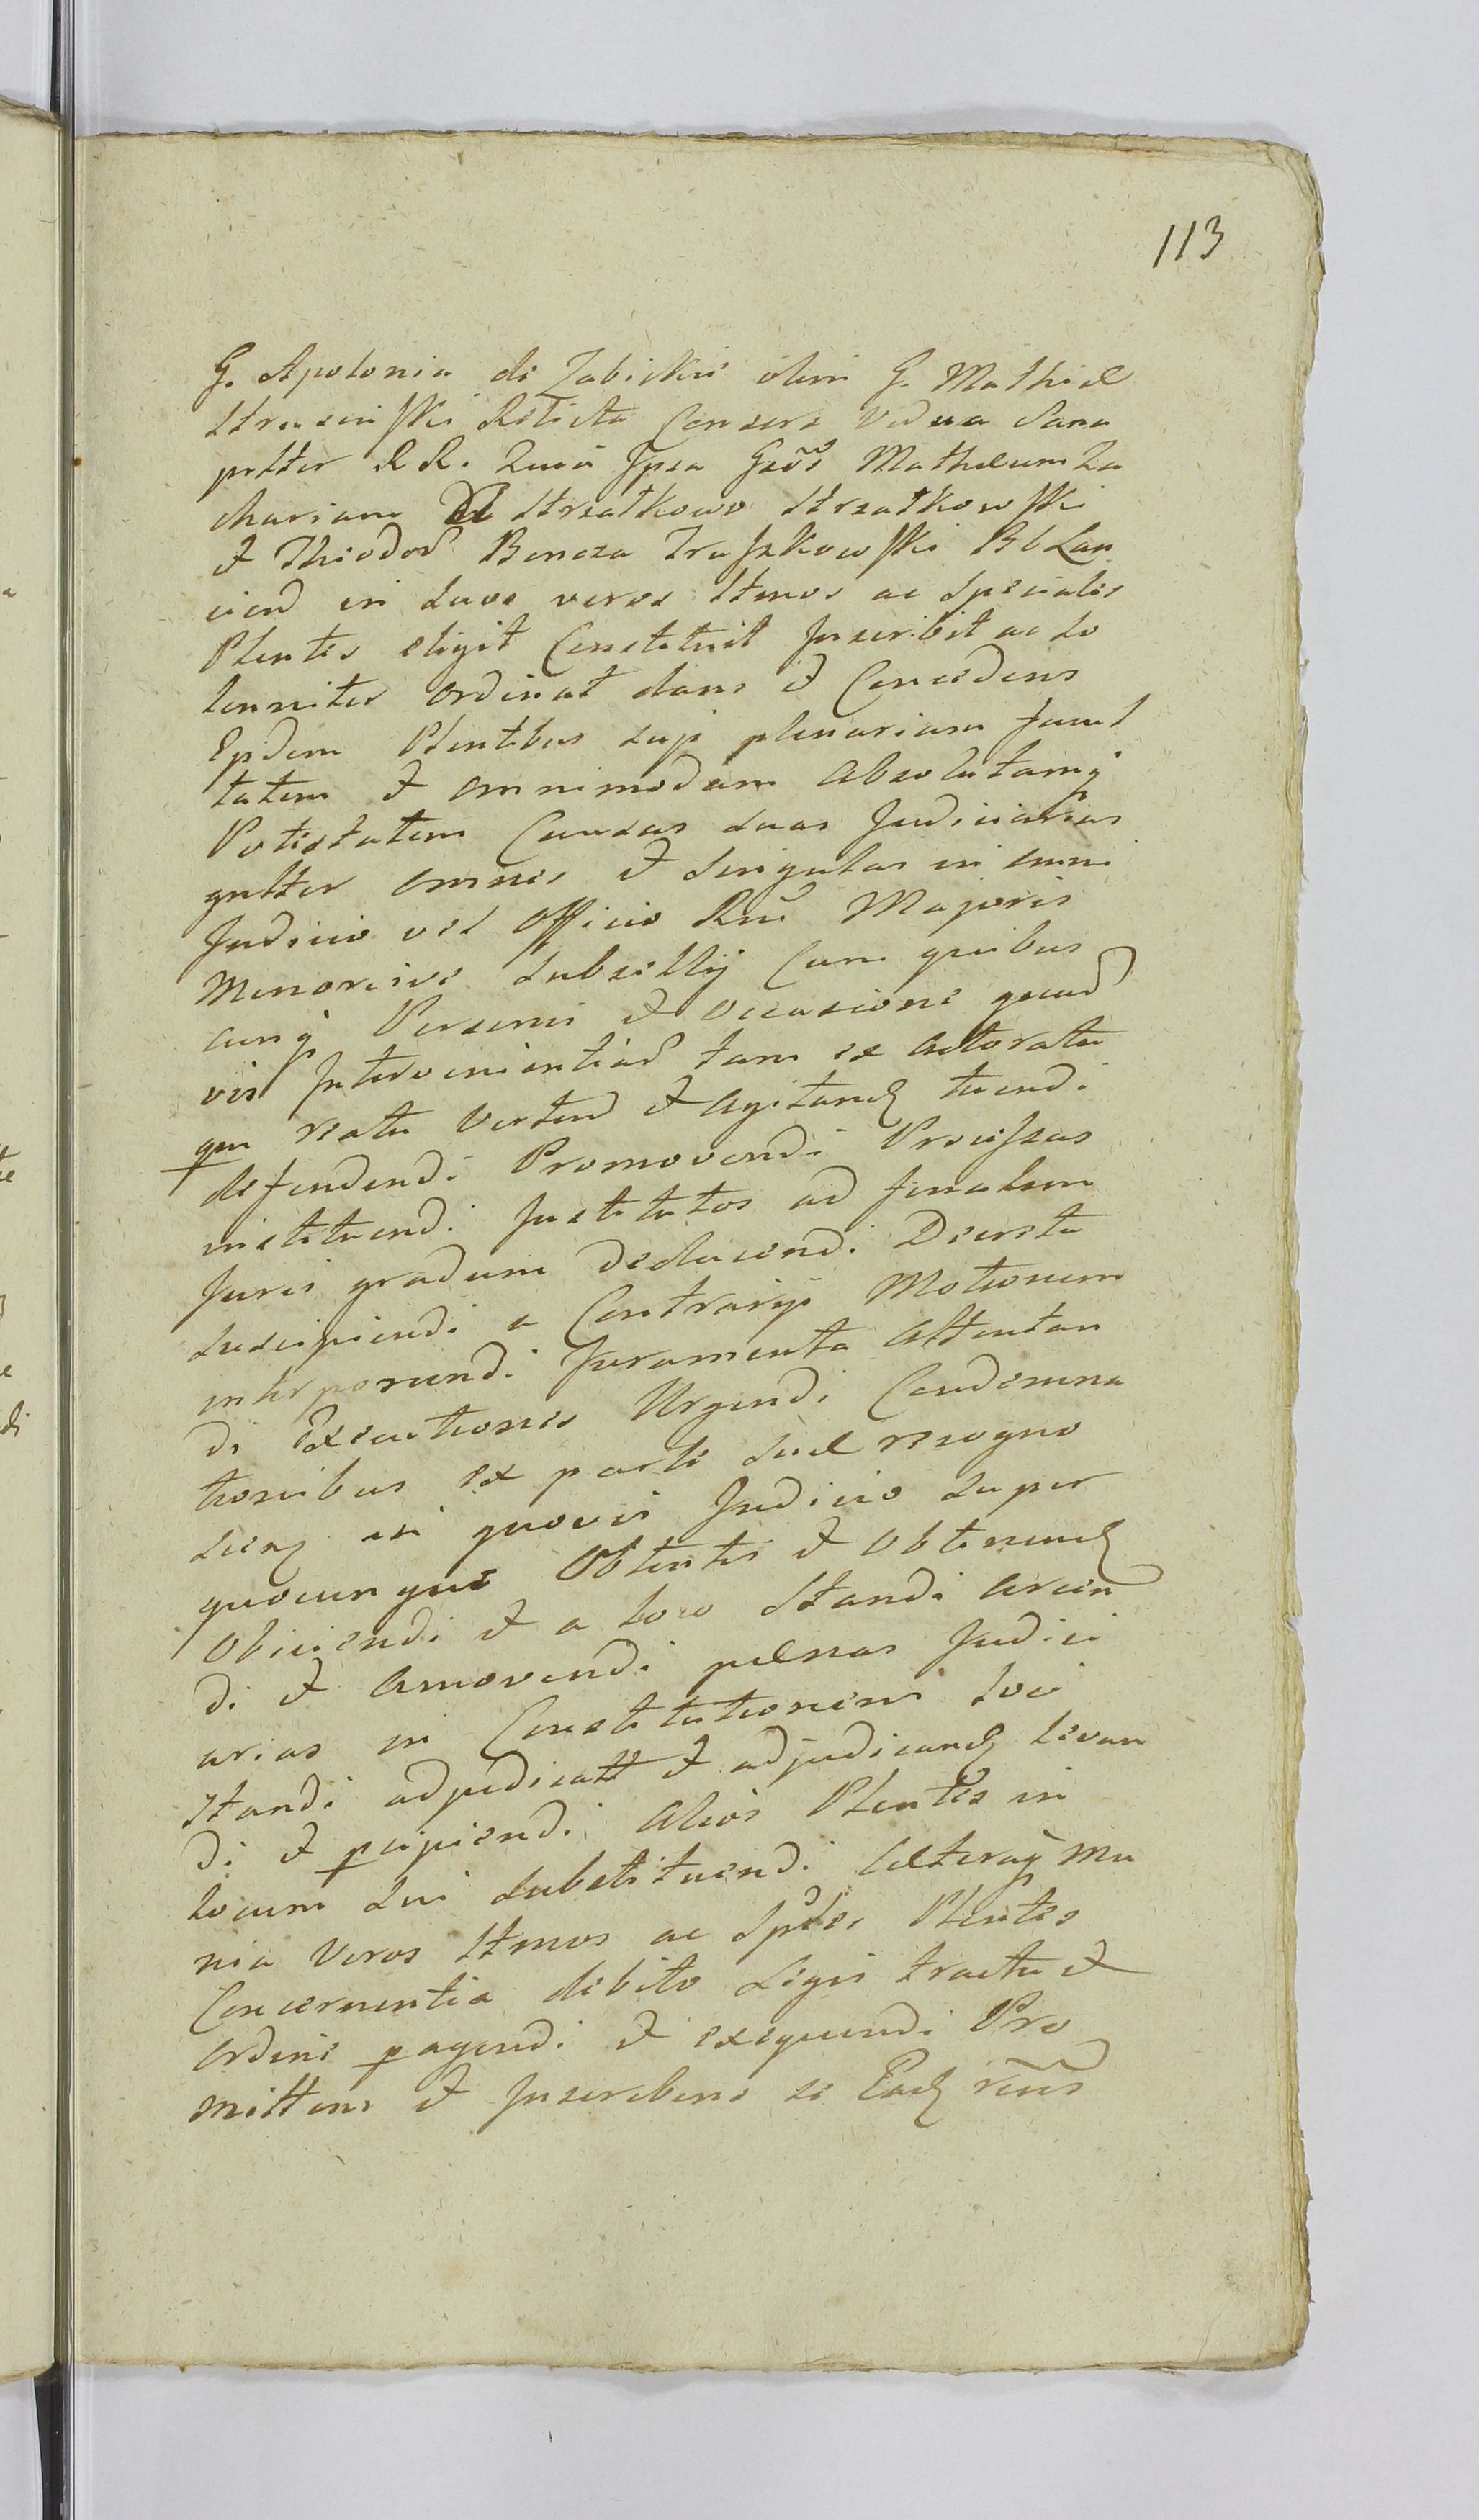 113
G. Apolonia de Zabickie olim G. Mathiæ
Struszinski Relicta Consors Vidua Sana
prstter R R. Quia Ipsa Gsōs Mathæum Za
chariam De Strzałkowo Strzałkowski
et Theodor Bencza Truszkowski Bb Lan
ciend in suos veros Ltmos ac Speciales
Plentes eligit Constituit Inscribit ac so
lenniter ordinat dans et Concedens
Eysdem Plentibus suis plenariam facul
tatem et omnimodam absolutamq
Potestatem Causas suas Judiciarias
gnltter omnes et singulas in omni
Judicio vel officio Rni Majoris
Minorisve subsellij Cum quibus
cunq Personis et occasione quar
vis Intervenientiar tam ex actoratu
qm reatu vertend et agitand tuendi
defendendi Promovendi Processus
instituendi Institutos ad finalem
Juris gradum deducendi Decreta
suscipiendi a Contrarijs Motionem
interponendi Juramenta attentan
di Executiones Urgendi Condemna
tionibus ex parte suæ recogno
scenq in quovis Judicio super
quocunque Obtentis et Obtinend
obiiciendi et a loco standi arcen
di et amovendi pænas Judici
arias in Constitutionem loci
standi adjudicatt et adjudicand levan
di et pcipiendi alios Plentes in
locum sui substituendi Cæteraq mu
nia veros Ltmos ac Sples Plentes
Concernentia debito Legis tractu et
ordine pagendi et exequendi Pro
mittens et Inscribens se Ead rēns